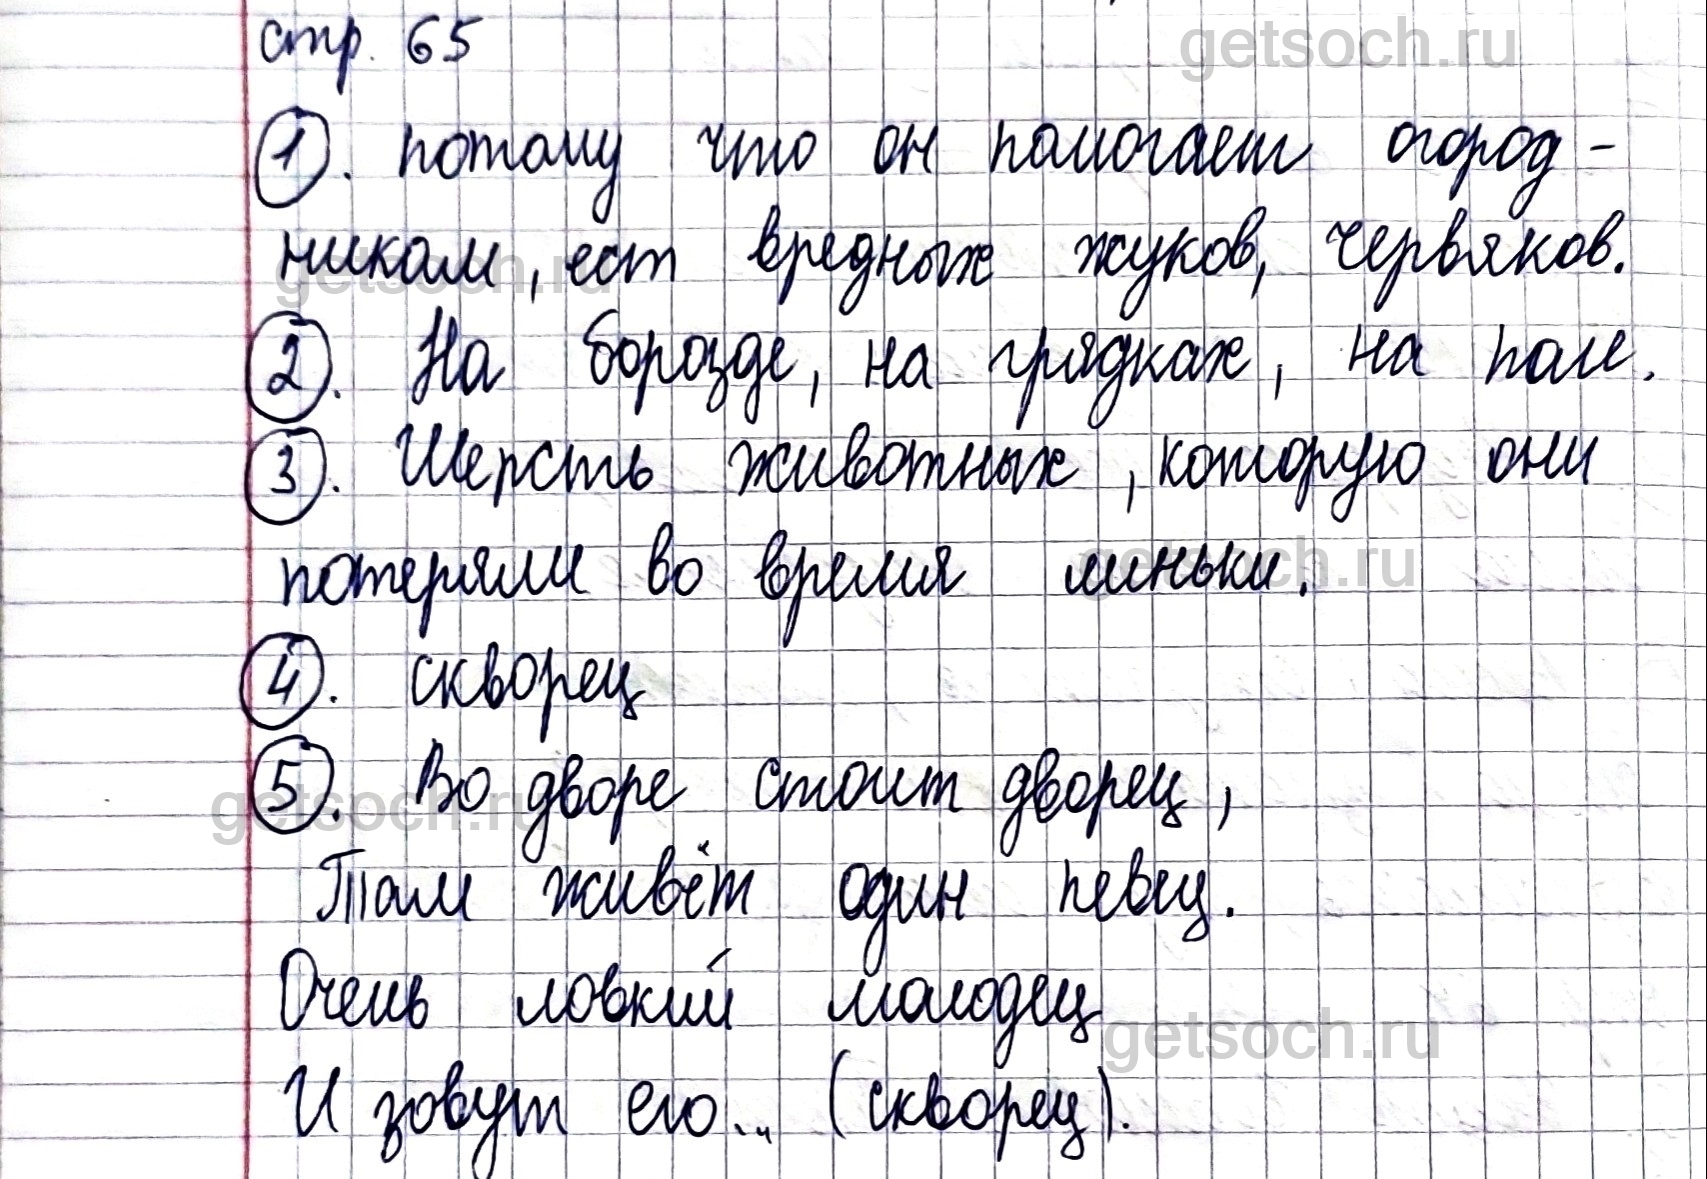 стр. 65
getsoch.ru
1. потому что он помогает огород-
никам, ест вредных жуков, червяков.
getsoch.ru
2. На борозде, на грядках, на поле.
3. Шерсть животных, которую они
потеряли во время линьки.
getsoch.ru
4. скворец
5. Во дворе стоит дворец,
getsoch.ru
Там живёт один певец.
Очень ловкий молодец
getsoch.ru
И зовут его... (скворец).